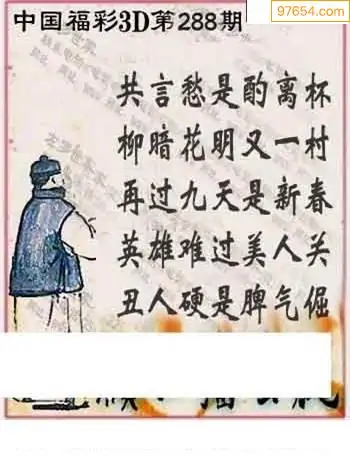 97654.com
中国福彩3D第288期
共言愁是酌离杯
柳暗花明又一村
再过九天是新春
英雄难过美人关
丑人硬是脾气倔